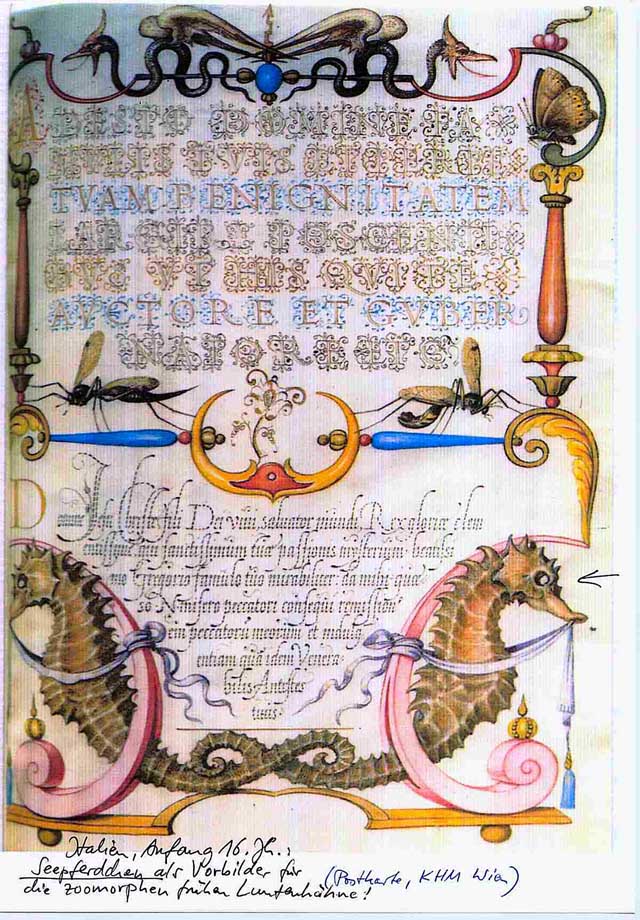 ADESTO DOMINE FA
MVLIS TVIS ET PERPE
TVAM BENIGNITATEM
LARGIRE
VT HIS QVI TE
AVCTORE ET GVBER
NATORE
D Dei viui, saluator mūndi Rex gloriæ clem
qui sanctissimum tuæ passionis mysterium beatiss
mo Gregorio famulo tūo da mihi quæ
so misero peccatori consequi remissiōn
em peccatorū meorum et indulg
entiam quā idem Venera
bilis Antistes
tuus
Italien, Anfang 16. Jh.:
Seepferdchen als Vorbilder für
die zoomorphen frühen Luntenhähne!
(Postkarte, KHM Wien)